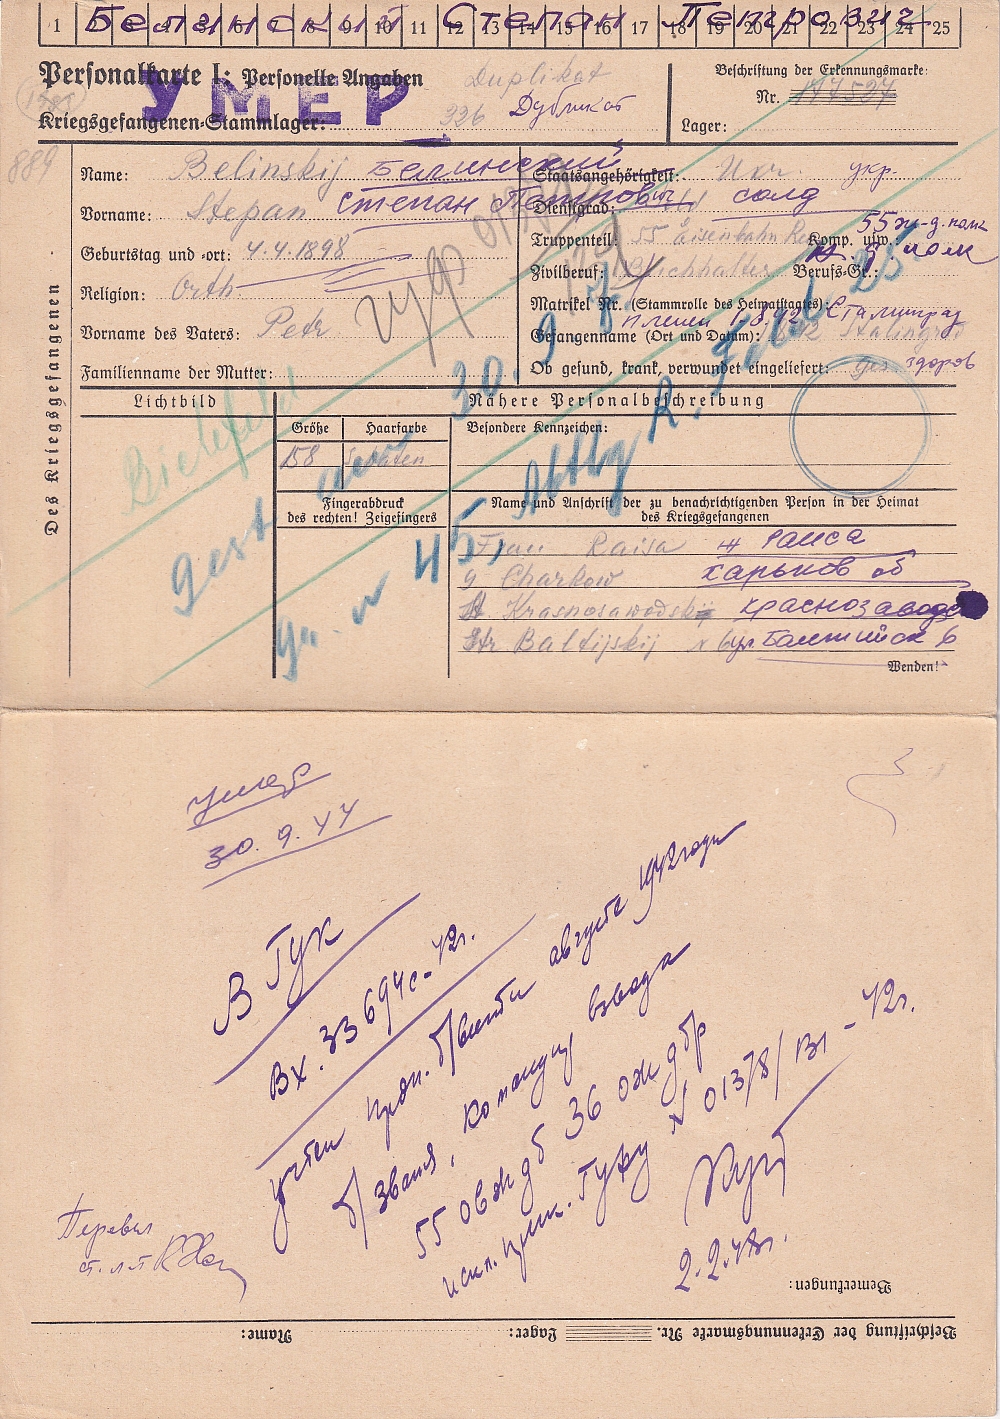 Белинский Степан Петрович
1 5 6 8 9 10 11 12 13 14 15 16 17 18 19 20 21 22 23 24 25
Personalkarte I: Personelle Angaben
Duplikat
Beschriftung der Erkennungsmarke:
УМЕР
326 Дубликат
Nr. 177527
Kriegsgefangenen-Stammlager:
Lager:
889
Des Kriegsgefangenen
Name: Belinskij Белинский
Staatsangehörigkeit: Ukr. укр.
Vorname: Stepan Степан Петрович
Dienstgrad: солд
Truppenteil: 55 Eisenbahn Komp. usw.: 55 ж-д. полк
Geburtstag und -ort: 4.4.1898
Zivilberuf: Buchhalter Berufs-Gr.:
Religion: Orth
Matrikel Nr. (Stammrolle des Heimatstaates):
Vorname des Vaters: Petr
пленен 1.8.42 Сталинград
Gefangenname (Ort und Datum): Stalingrad
Familienname der Mutter:
Ob gesund, krank, verwundet eingeliefert: ges. здоров
гуф
Bielefeld
gest. 30. 9.
45, Abtlg R. Feld 25.
Lichtbild
Nähere Personalbeschreibung
Größe Haarfarbe
Besondere Kennzeichen:
158
Fingerabdruck
des rechten! Zeigefingers
Name und Anschrift der zu benachrichtigenden Person in der Heimat
des Kriegsgefangenen
Frau Raisa ж Раиса
g Charkow Харьков об
Krasnosawodskij Краснозаводс
Str Baltijskij N 6 ул. Балтийск 6
Wenden!
умер
30.9.44
В ГУК
Вх. 33694с-42г.
учтен проп. б/вести августе 1942 года
б/звания, командир взвода
55 овждб 36 ождбр
искл. прик. ГУФУ № 01378/ВП-42г.
2.2.48г.
Перевел
ст. л-т
Bemerkungen:
Name: Lager: Beschriftung der Erkennungsmarke Nr.